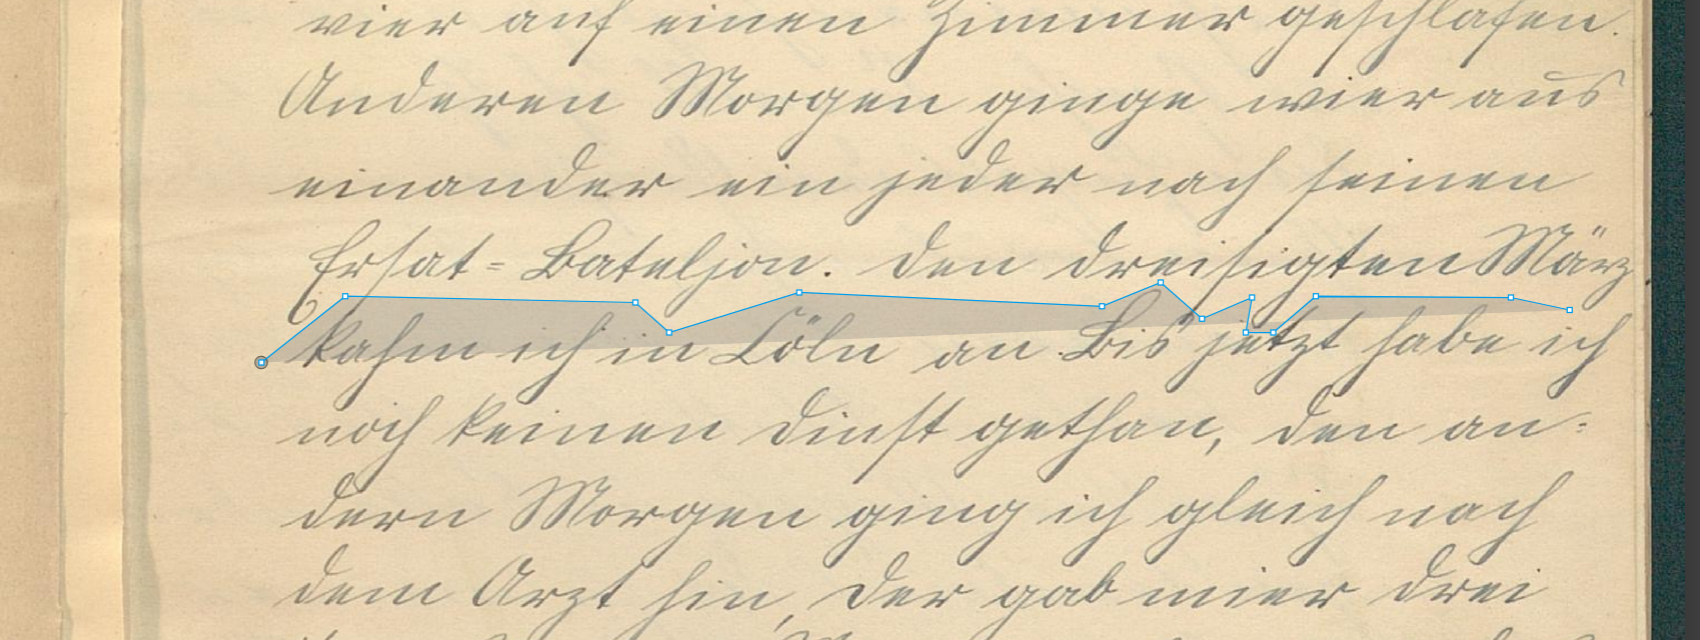 vier auf einen Zimmer geschlafen.
Anderen Morgen ginge wier aus
einander ein jeder nach seinen
Ersat=Bateljon. Den dreisigten März.
kahm ich in Cöln an. Bis jetzt habe ich
noch keinen Dinst gethan, den an=
dern Morgen ging ich gleich nach
dem Arzt hin, Der gab mier drei